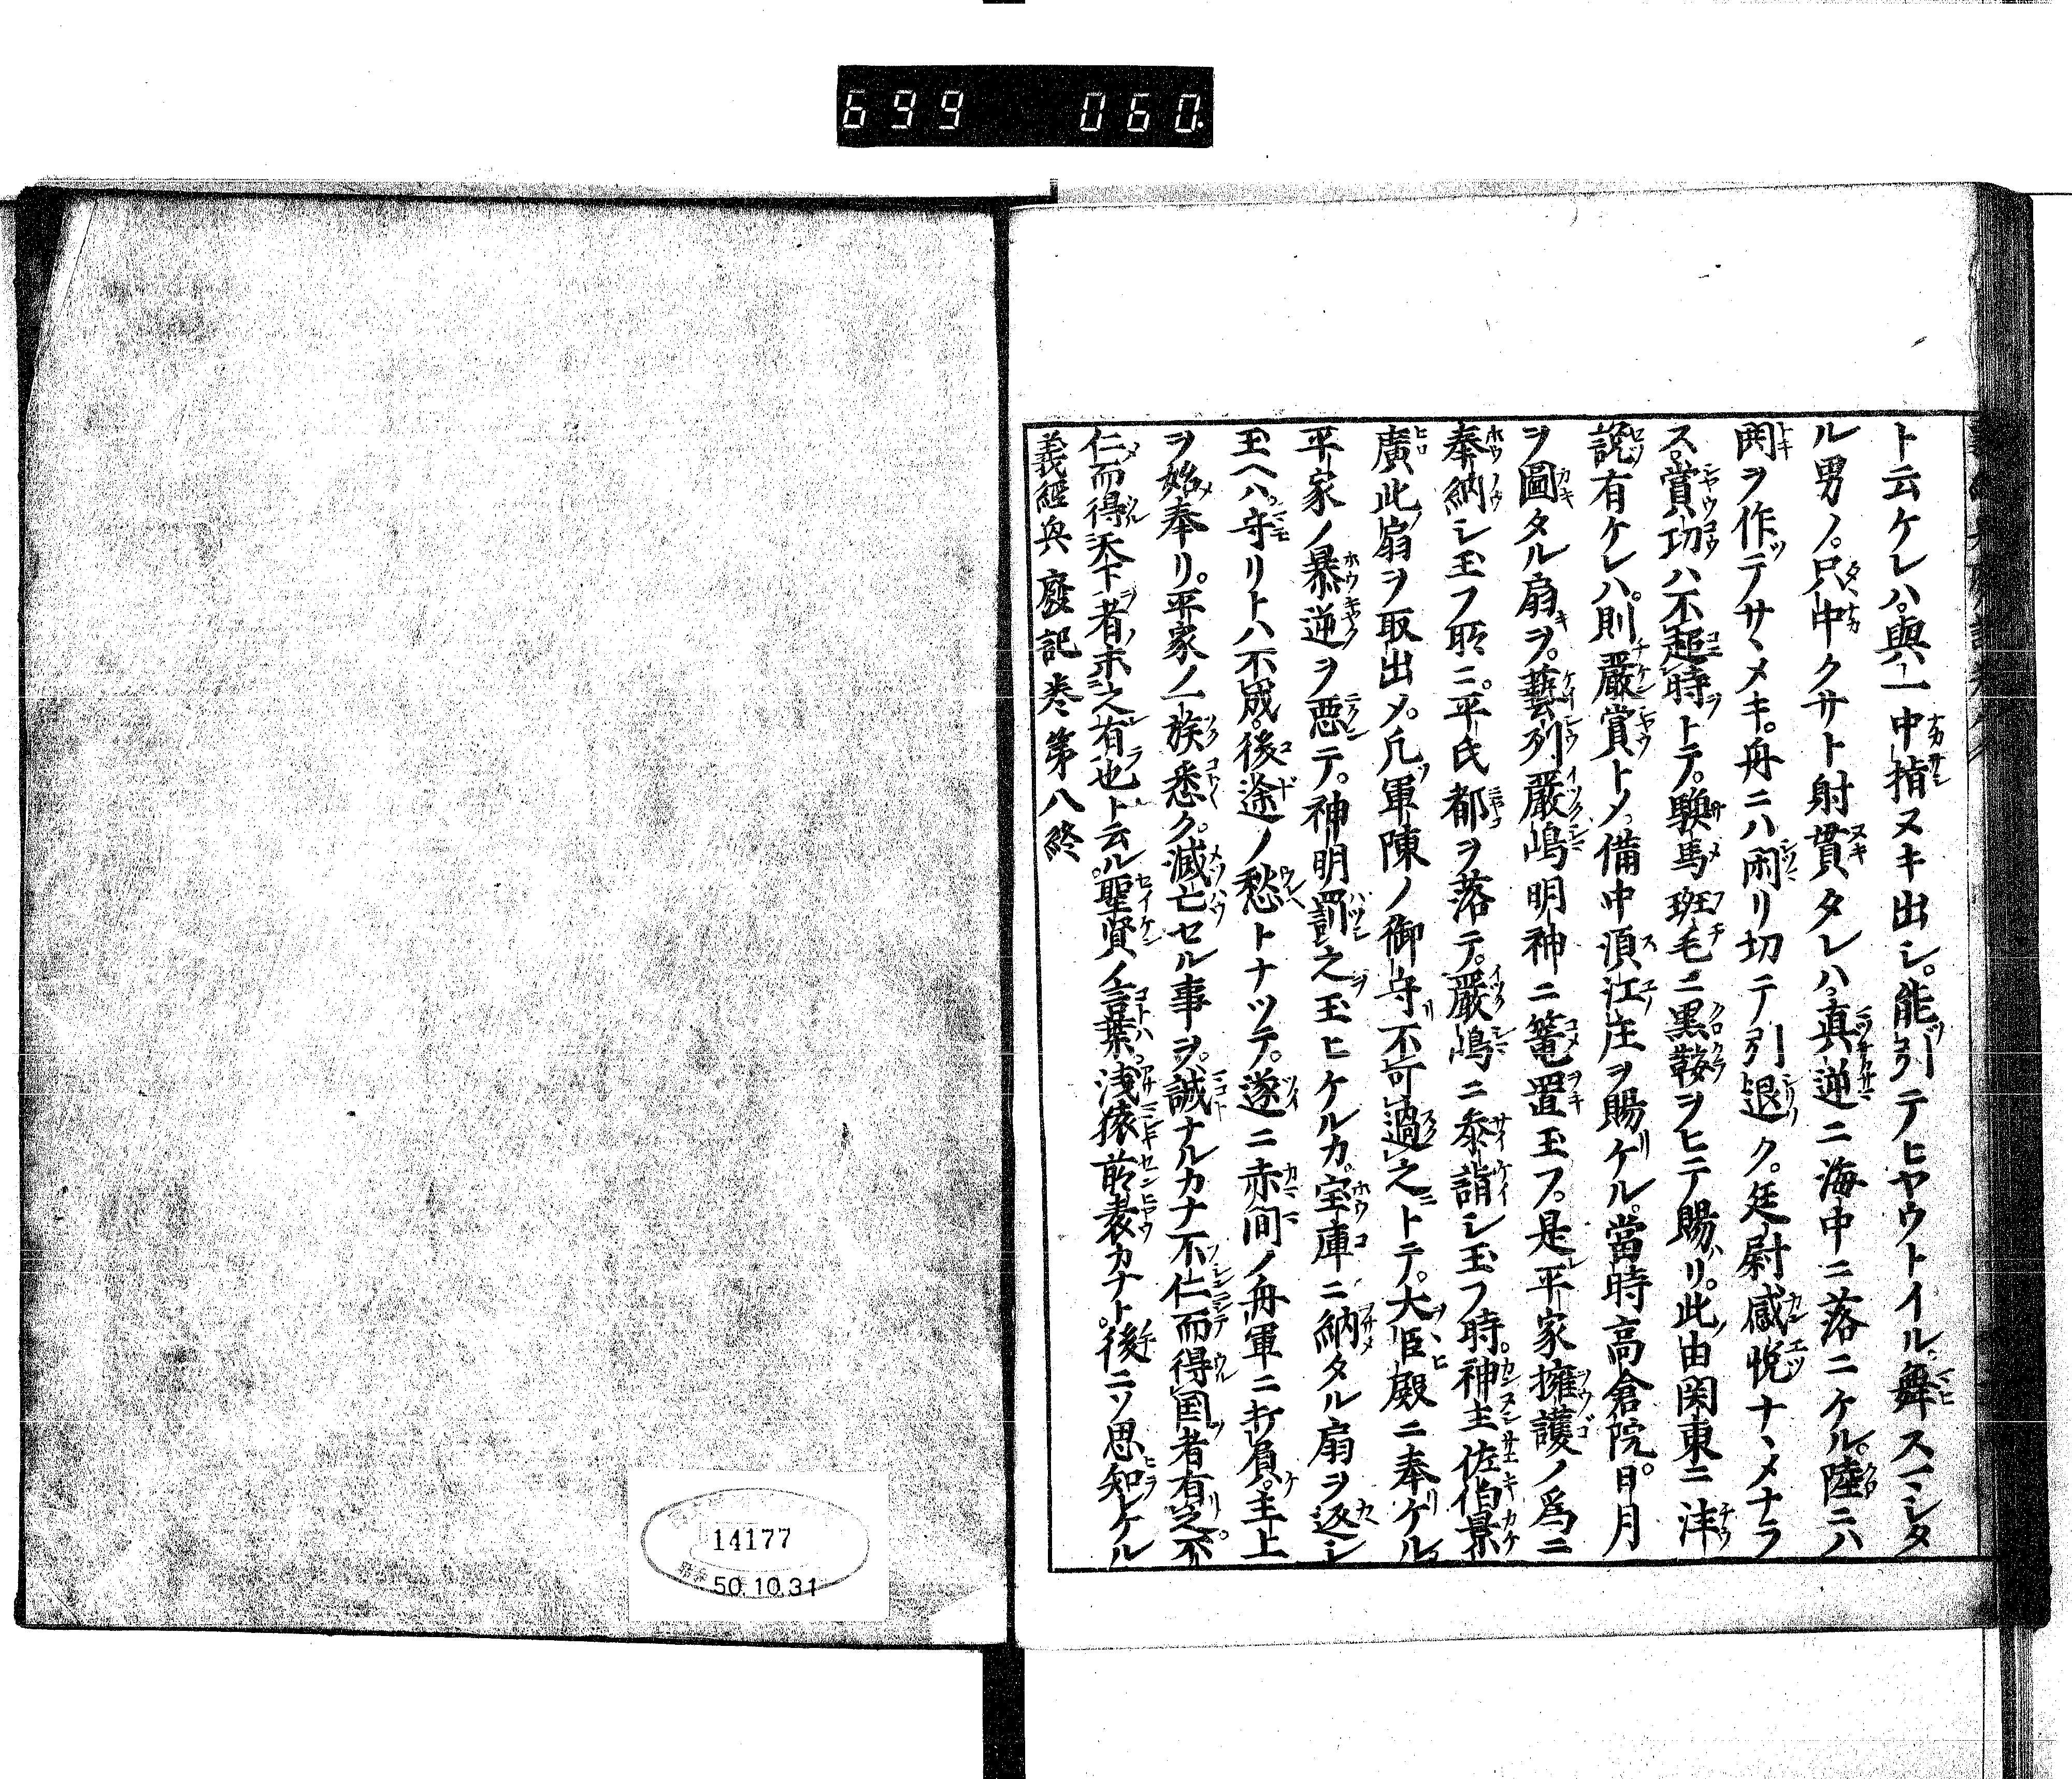 699 060
ト云ケレハ。與一中指ヌキ出シ。能引テヒヤウトイル。舞スマシタ
ル男ノ。只中クサト射貫タレハ。真逆ニ海中ニ落ニケル。陸ニハ
閧ヲ作テサヽメキ。舟ニハ閙リ切テ引退ク。廷尉感悦ナヽメナラ
ス。賞功ハ不超時トテ。騟馬班毛ニ黒鞍ヲヒテ賜ハリ。此由関東ニ注
說有ケレハ。則厳賞トメ。備中須江庄ヲ賜リケル。當時高倉院。日月
ヲ圖タル扇ヲ。藝列嚴嶋明神ニ篭置玉フ。是レ平家擁護ノ爲ニ
奉納シ玉フ所ニ。平氏都ヲ落テ。嚴嶋ニ参詣シ玉フ時。神主佐伯景
廣此扇ヲ取出メ。凡ソ軍陳ノ御守リ不可過之トテ。大臣殿ニ奉リゲル
平家ノ暴逆ヲ悪テ。神明罰之玉ヒケルカ。宝庫ニ納タル扇ヲ返シ
玉ヘハ。守リトハ不成。後途ノ愁トナツテ。遂ニ赤間ノ舟軍ニ打負ケ。主上
ヲ始奉リ。平家ノ一族悉ク。滅亡セル事ヲ。誠ナルカナ不仁而得国者有之。不
仁而得天下者未之有也ト云ル。聖賢ノ言葉。浅猿前表カナト。後ニソ思知レケル
義經兵廢記巻第八終
14177
50.10.31